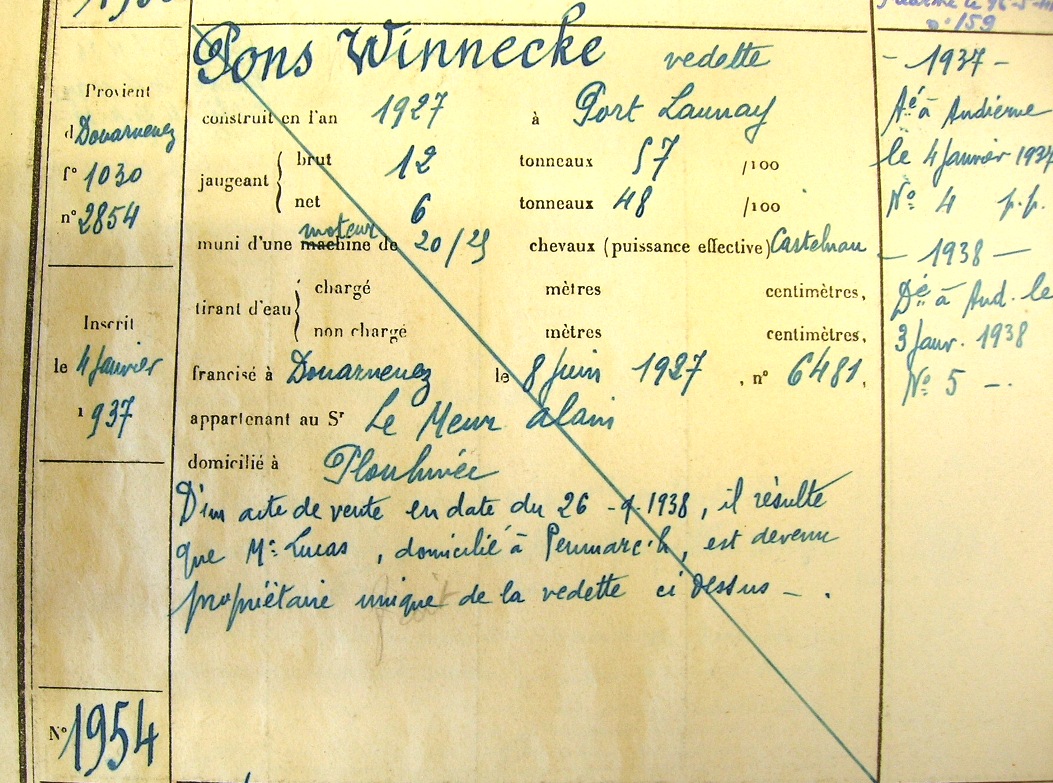 n° 159
Provient
d Douarnenez
f° 1030
n° 2854
Inscrit
le 4 Janvier
1937
N° 1954
Pons Winnecke vedette
construit en l'an 1927 à Port Launay
jaugeant { brut 12 tonneaux 57 /100
net 6 tonneaux 48 /100
moteur
muni d'une machine de 20/25 chevaux (puissance effective) Castelnau
tirant d'eau { chargé mètres centimètres,
non chargé mètres centimètres,
francisé à Douarnenez le 8 Juin 1927, n° 6481,
appartenant au Sr Le Meur Alain
domicilié à Plouhinec
D'un acte de vente en date du 26 - 9. 1938, il résulte
que Mr Lucas, domicilié à Penmarc'h, est devenu
propriétaire unique de la vedette ci dessus - .
- 1937 -
Aé à Audierne
le 4 Janvier 1937
N° 4 p.p.
- 1938 -
Dé à Aud. le
3 Janv. 1938
N° 5 -.